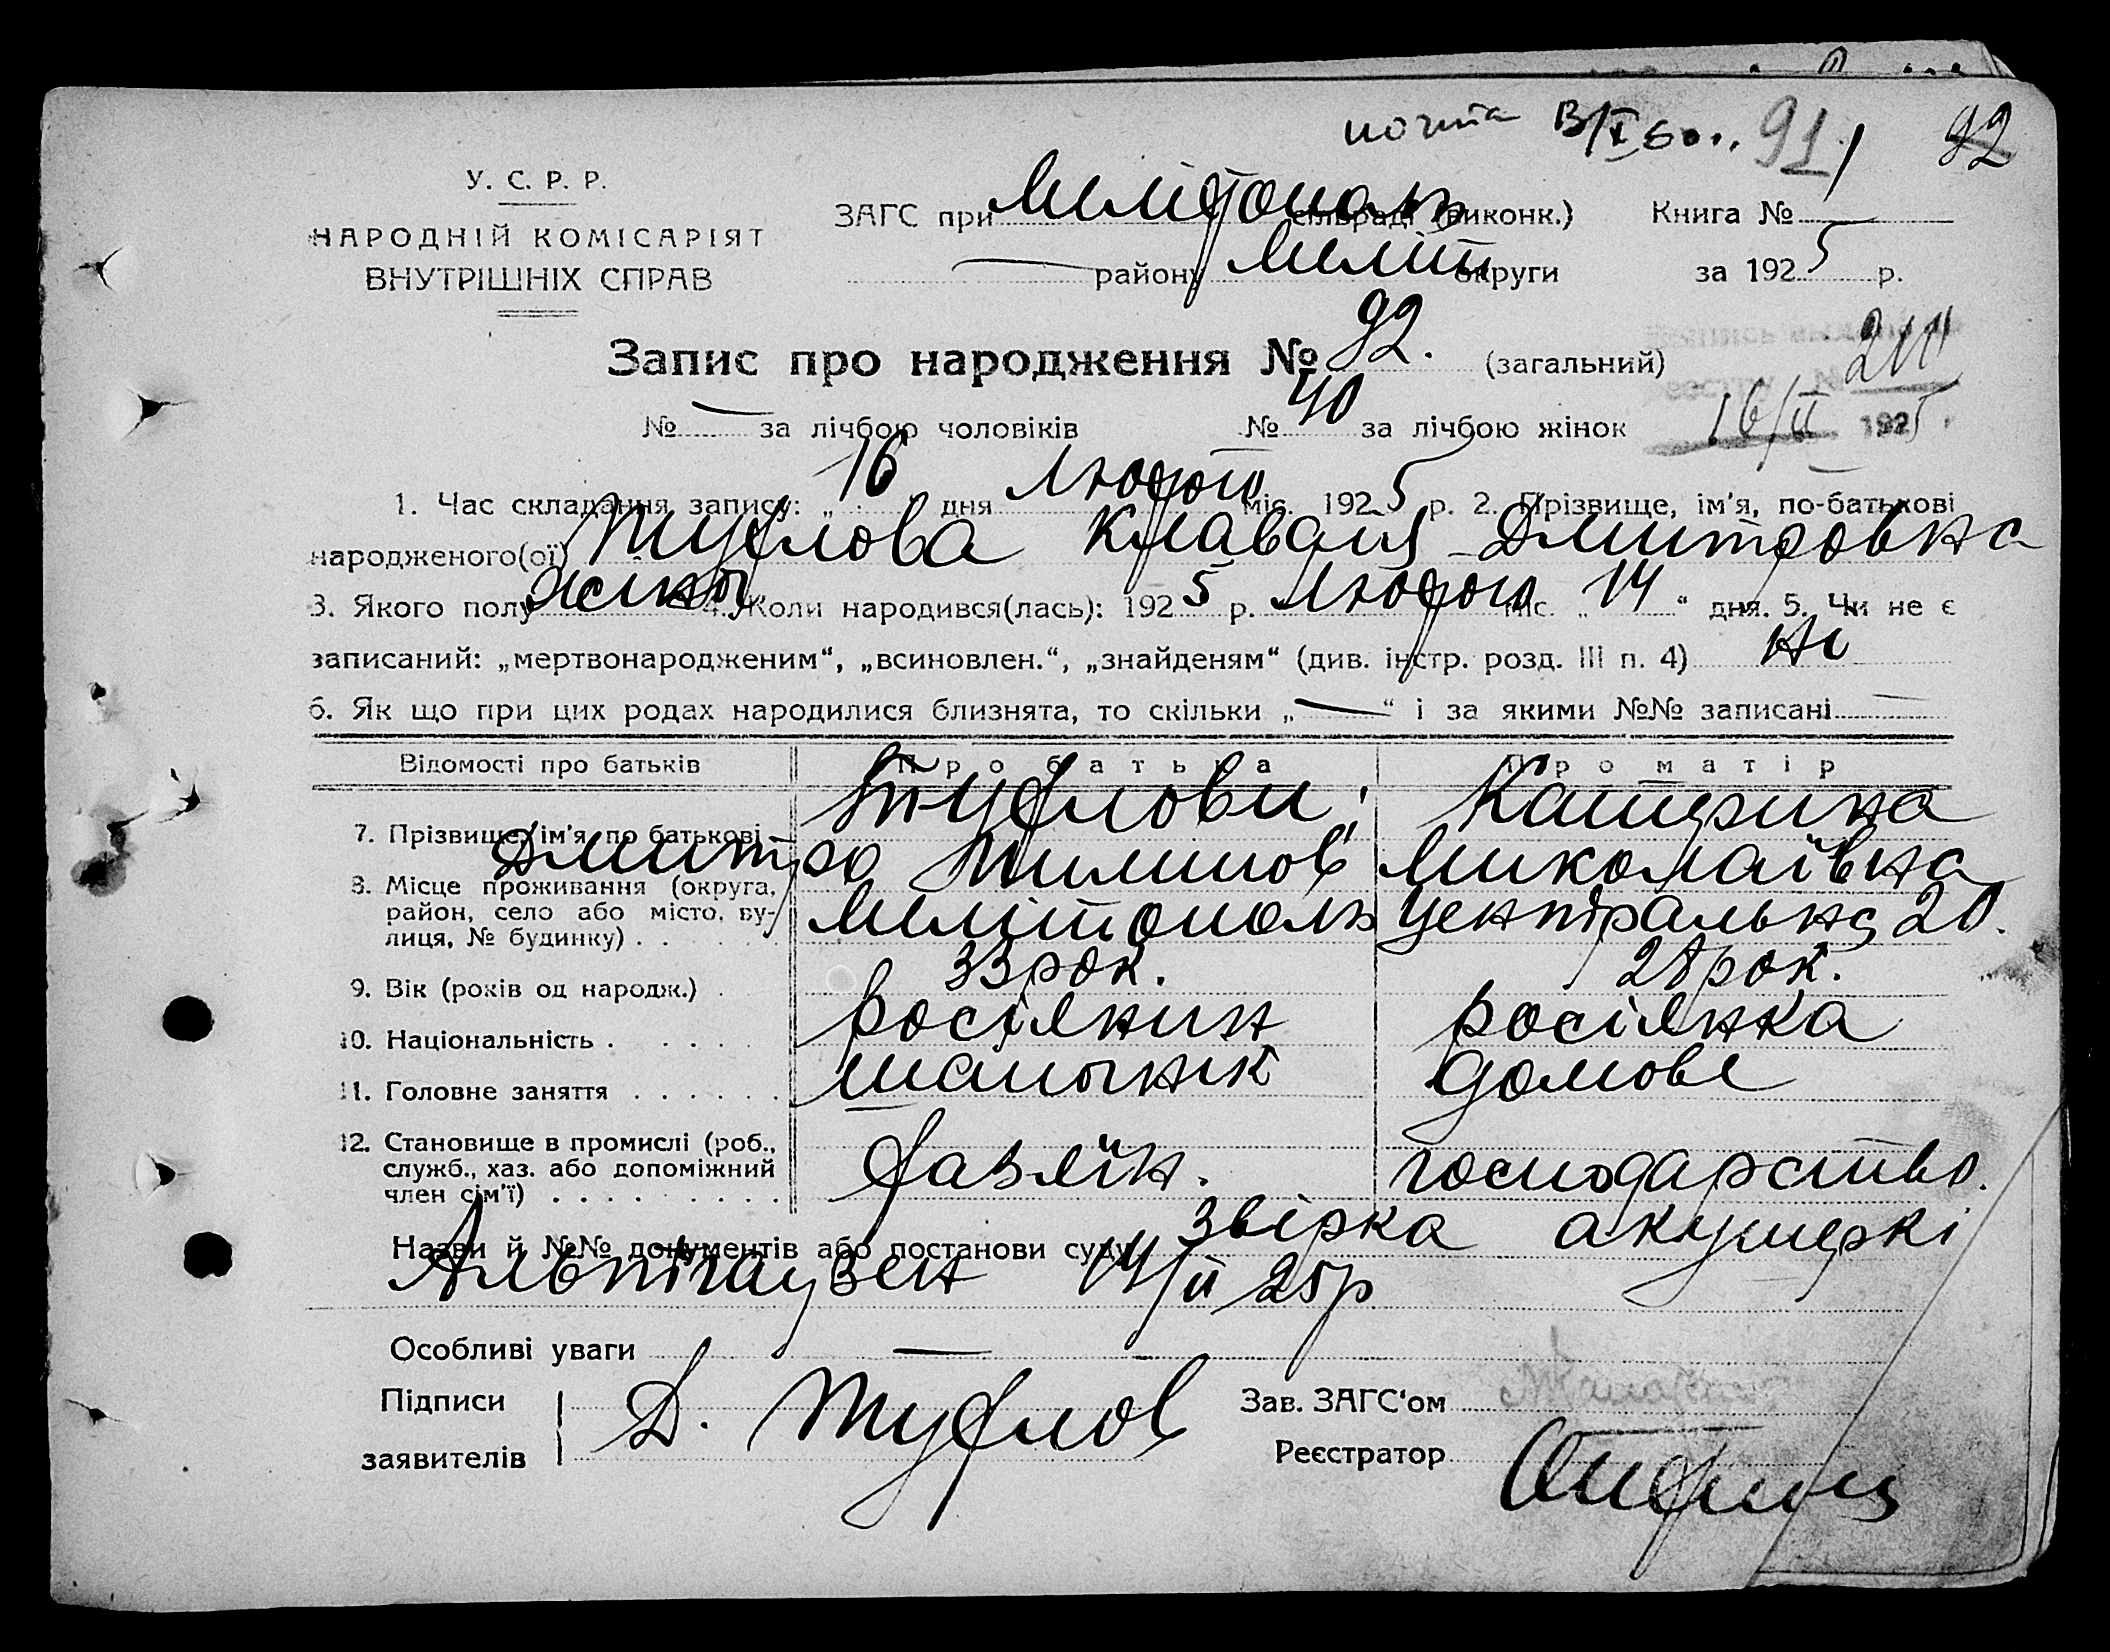 91 92
У. С. Р. Р.
НАРОДНІЙ КОМІСАРІЯТ
ВНУТРІШНІХ СПРАВ
ЗАГС при Мелітополь сільраді (виконк.) Книга № 1
— району Меліт округи за 1925 р.
Запис про народження № 92. (загальний)
№ — за лічбою чоловіків № 40 за лічбою жінок
16/II 1925
1. Час складання запису: „ 16 дня Лютого міс. 1925 р. 2. Прізвище, ім'я, по-батькові
народженого(ої) Туфлова Клавдія Дмитровна
3. Якого полу жіно 4. Коли народився(лась): 1925 р. Лютого міс. „ 14 “ дня. 5. Чи не є
записаний: „мертвонародженим“, „всиновлен.“, „знайденям“ (див. інстр. розд. III п. 4) ні
6. Як що при цих родах народилися близнята, то скільки „ — “ і за якими №№ записані —
Відомості про батьків Про батька Про матір
7. Прізвище, ім'я по батькові Туфлови: Катерина
Дмитро Миколаївна
8. Місце проживання (округа,
район, село або місто, ву-
лиця, № будинку) . Мелітополь Центральна 20.
9. Вік (років од народж.) . 33 рок. 28 рок.
10. Національність . росіянин росіянка
11. Головне заняття . . . . . . шапочник домове
12. Становище в промислі (роб.,
служб., хаз. або допоміжний
член сім'ї) . . . . . . . . . хазяїн. господарство.
Назви й №№ документів або постанови суду звірка акушеркі
Альтгаузен 14/II 25р
Особливі уваги —
Підписи
заявителів Д. Туфлов
Зав. ЗАГС'ом
Реєстратор